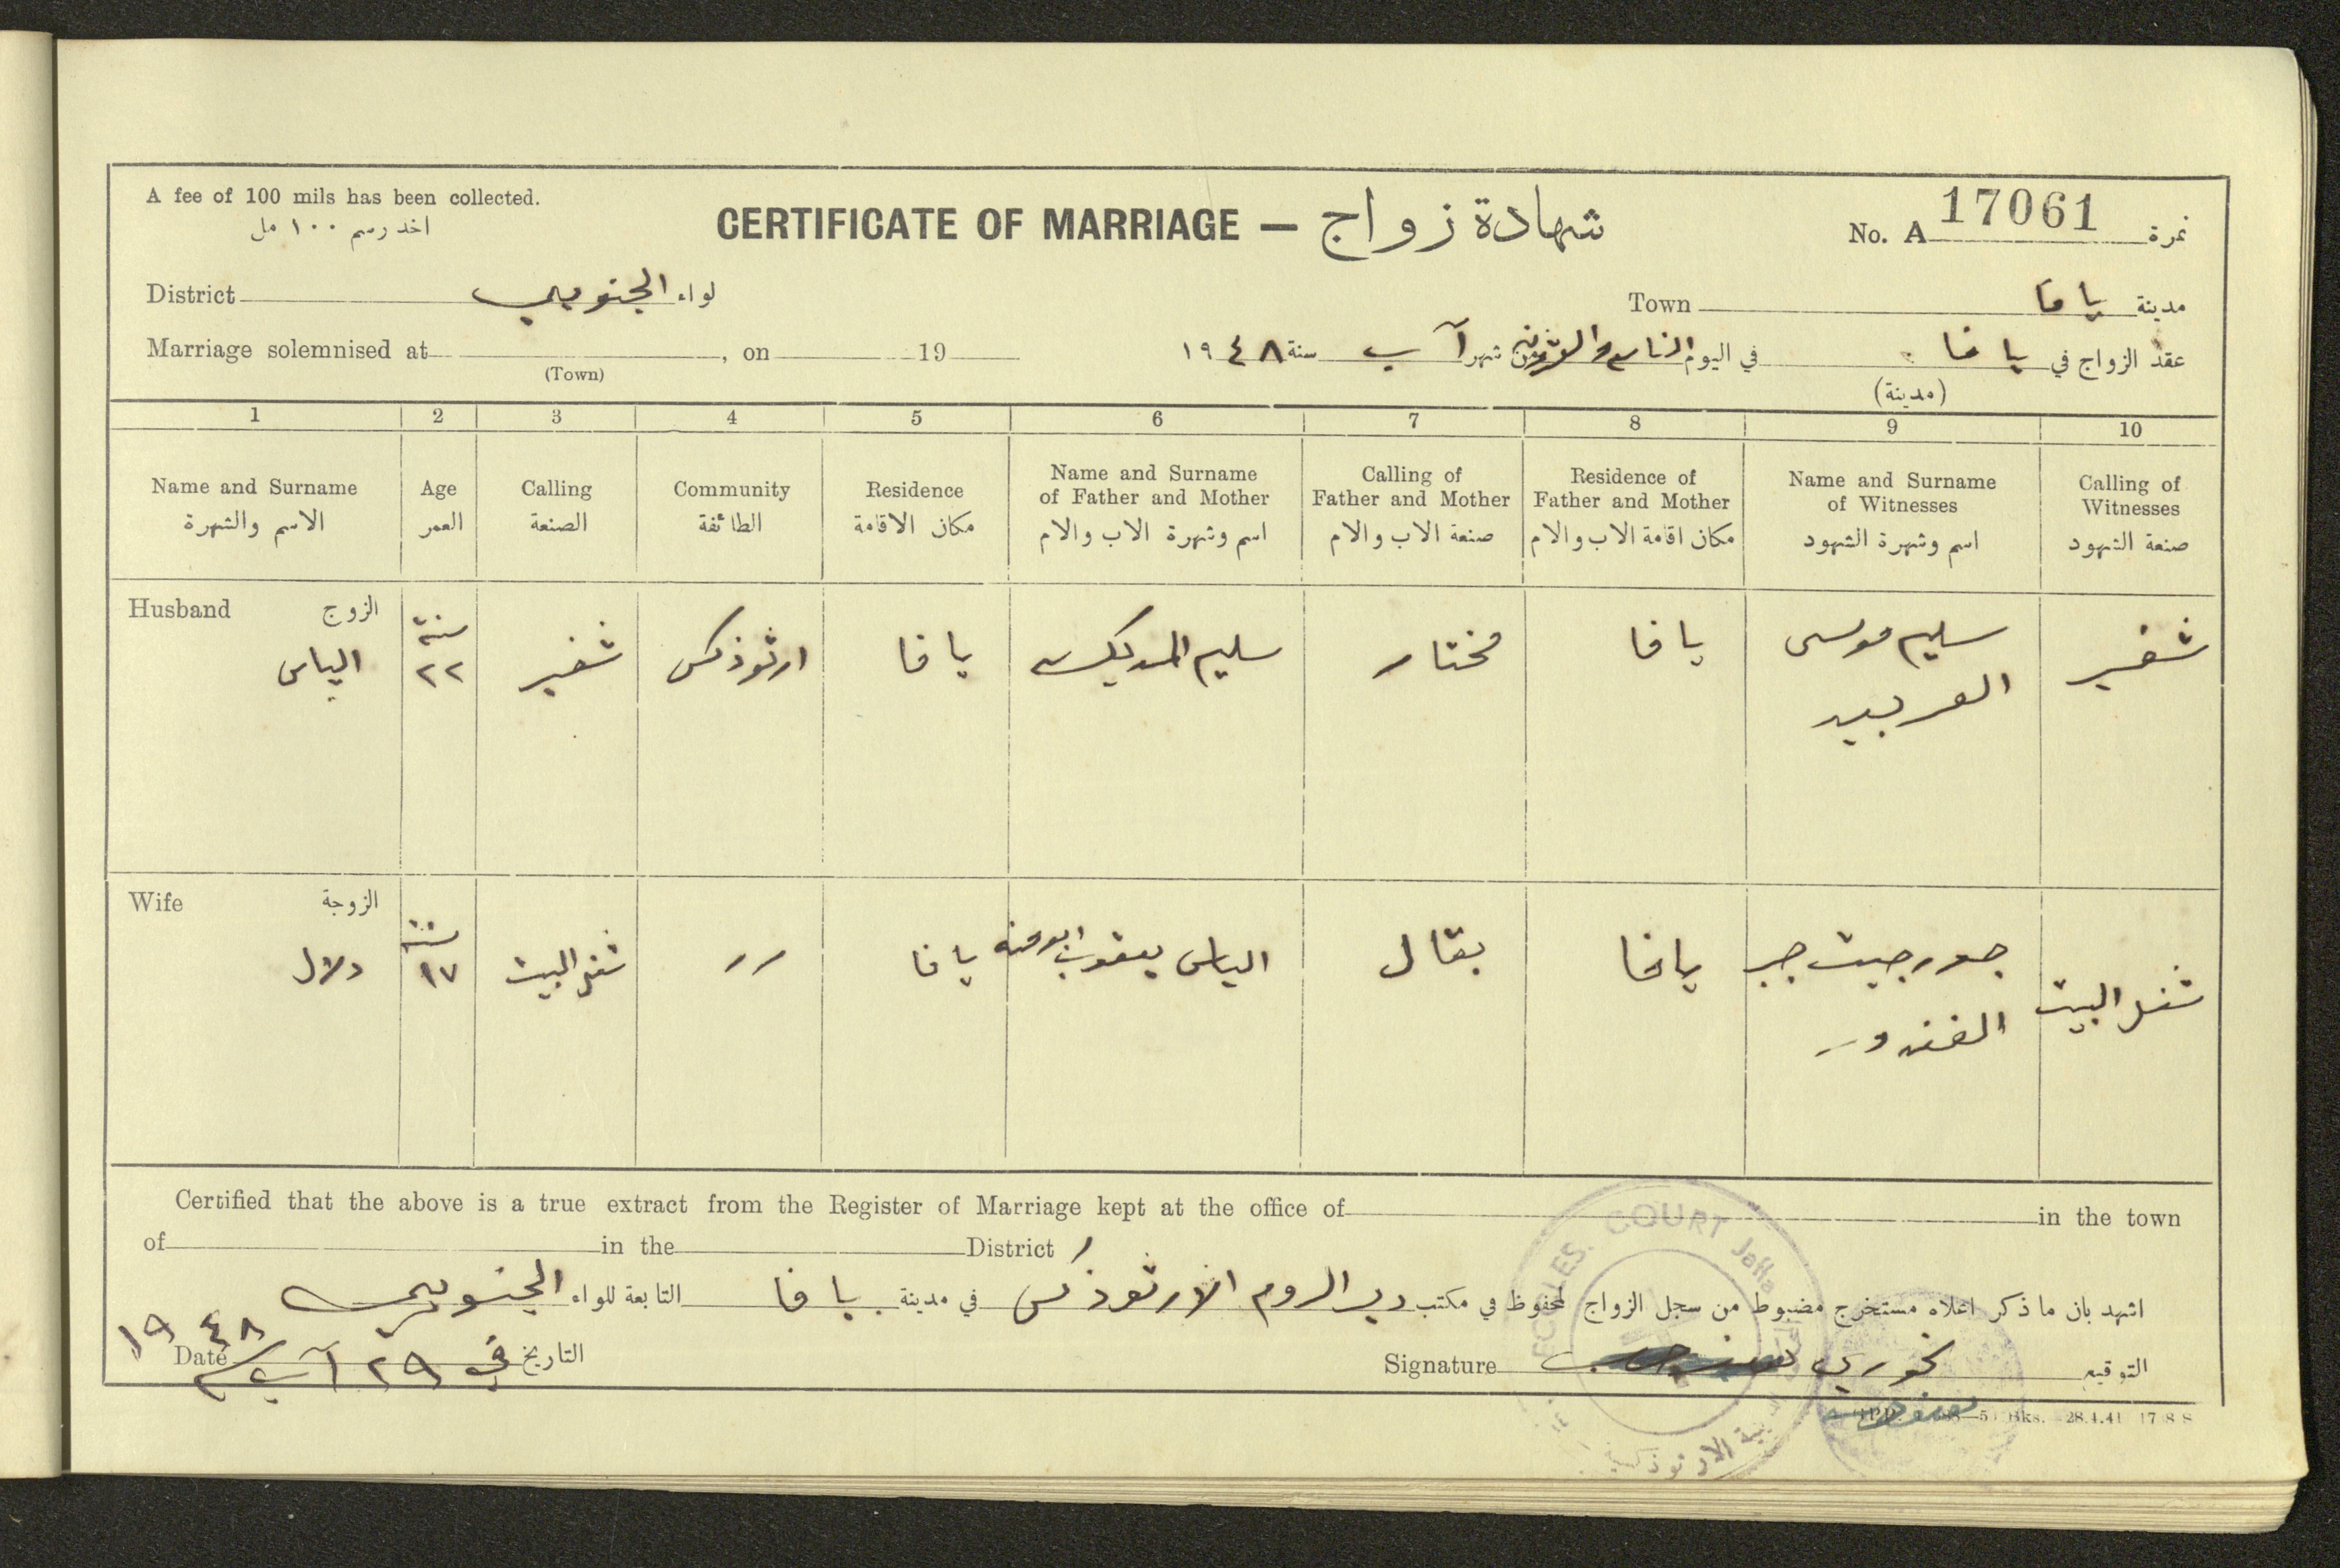 A fee of 100 mils has been collected.
اخذ رسم ١٠٠ مل
CERTIFICATE OF MARRIAGE — شهادة زواج
No. A 17061 نمرة
District لواء الجنوبي
Town مدينة يافا
Marriage solemnised at , on 19
(Town)
عقد الزواج في يافا في اليوم التاسع والعشرون شهر آب سنة ١٩٤٨
(مدينة)
1 2 3 4 5 6 7 8 9 10
Name and Surname
الاسم والشهرة
Age
العمر
Calling
الصنعة
Community
الطائفة
Residence
مكان الاقامة
Name and Surname
of Father and Mother
اسم وشهرة الاب والام
Calling of
Father and Mother
صنعة الاب والام
Residence of
Father and Mother
مكان اقامة الاب والام
Name and Surname
of Witnesses
اسم وشهرة الشهود
Calling of
Witnesses
صنعة الشهود
Husband الزوج
الياس
سنة
٢٢
شفير
ارثوذكس
يافا
سليم
مختار
يافا
سليم موسى
شفير
Wife الزوجة
دلال
سنة
١٧
شغل البيت
〃
يافا
الياس يعقوب
بقال
يافا
جورجيت
الغندور
شغل البيت
Certified that the above is a true extract from the Register of Marriage kept at the office of in the town
of in the District
اشهد بان ما ذكر اعلاه مستخرج مضبوط من سجل الزواج المحفوظ في مكتب دير الروم الارثوذكس في مدينة يافا التابعة للواء الجنوبي
Date التاريخ في ٢٩ آب ١٩٤٨
Signature خوري التوقيع
ECCLES. COURT Jaffa
الارثوذكسية
28.4.41